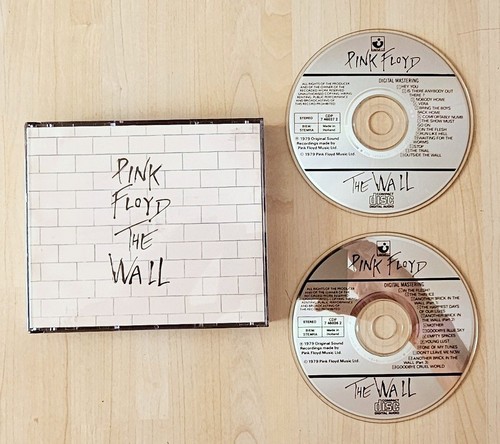 PINK
FLOYD
THE
WALL
PINK FLOYD
DIGITAL MASTERING
ALL RIGHTS OF THE PRODUCER
AND OF THE OWNER OF THE
HEY YOU
IS THERE ANYBODY OUT
THERE ?
NOBODY HOME
VERA
BRING THE BOYS
BACK HOME
COMFORTABLY NUMB
THE SHOW MUST
GO ON
IN THE FLESH
RUN LIKE HELL
WAITING FOR THE
WORMS
STOP
THE TRIAL
OUTSIDE THE WALL
STEREO
CDP
Made in
Holland
BIEM
STEMRA
℗ 1979 Original Sound
Recordings made by
Pink Floyd Music Ltd.
© 1979 Pink Floyd Music Ltd.
THE WALL
COMPACT
disc
DIGITAL AUDIO
PINK FLOYD
DIGITAL MASTERING
IN THE FLESH?
THE THIN ICE
ANOTHER BRICK IN THE
WALL (Part 1)
THE HAPPIEST DAYS
OF OUR LIVES
ANOTHER BRICK IN THE
WALL (Part 2)
MOTHER
GOODBYE BLUE SKY
EMPTY SPACES
YOUNG LUST
ONE OF MY TURNS
DON'T LEAVE ME NOW
ANOTHER BRICK IN THE
WALL (Part 3)
GOODBYE CRUEL WORLD
STEREO
CDP
Made in
Holland
BIEM
STEMRA
℗ 1979 Original Sound
Recordings made by
Pink Floyd Music Ltd.
© 1979 Pink Floyd Music Ltd.
THE WALL
COMPACT
disc
DIGITAL AUDIO